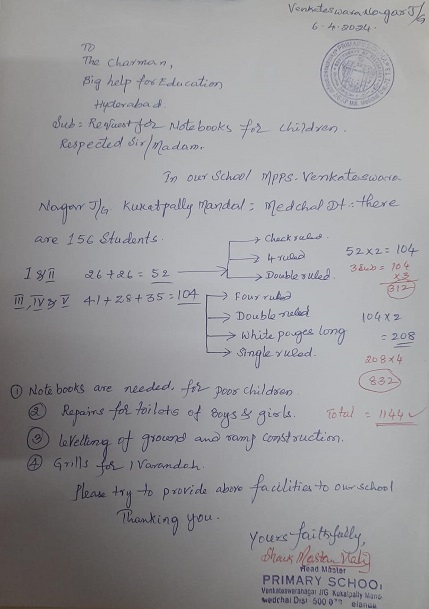 Venkateswara Nagar J/G
6-4-2024.
TO
The Charman,
Big help for Education
Hyderabad.
Sub= Request for Notebooks for children.
Respected Sir/Madam.
In our School MPPS. Venkateswara
Nagar J/G Kukatpally Mandal: Medchal Dt: there
are 156 Students.
→ Check ruled.
→ 4 ruled
I & II 26+26 = 52 → Double ruled.
52 x 2 = 104
3 sub = 104
x 3
312
III, IV & V 41+28+35 = 104 → Four ruled
→ Double ruled
→ White pages long
→ Single ruled.
104 x 2
= 208
208 x 4
832
① Note books are needed, for poor children
② Repairs for toilots of Boys & girls.
Total = 1144
③ levelling of ground and ramp construction.
④ Grills for 1 Varandah.
Please try to provide above facilities to our school
Thanking you.
Yours faithfully,
Head Master
PRIMARY SCHOOL
Venkateswaranagar J/G Kukatpally Mand
Medchal Dist 500 072